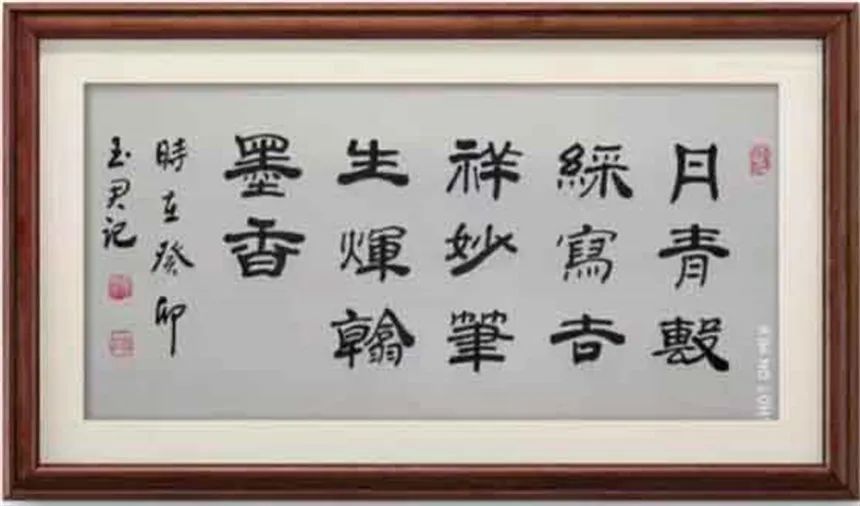 丹青
綵寫吉
祥妙筆
生煇翰
墨香
時在癸卯
玉君记